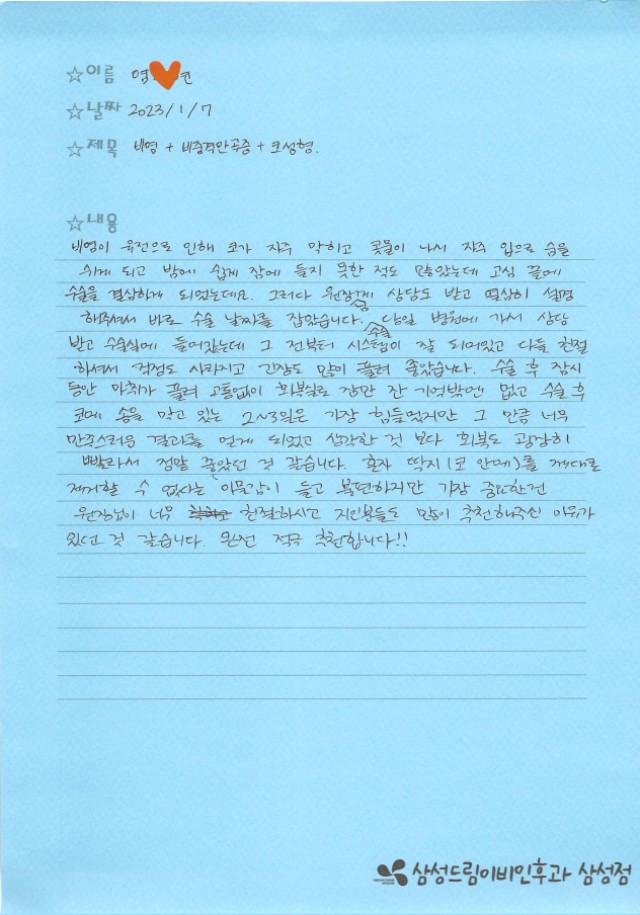 ☆이름 엄
☆날짜 2023/1/7
☆제목 비염 + 비중격만곡증 + 코성형.
☆내용
비염이 유전으로 인해 코가 자주 막히고 콧물이 나서 자주 입으로 숨을
쉬게 되고 밤에 쉽게 잠에 들지 못한 적도 많았는데 고심 끝에
수술을 결심하게 되었는데요. 그러다 원장님께 상담도 받고 열심히 설명
해주셔서 바로 수술 날짜를 잡았습니다. 당일 병원에 가서 상담
받고 수술실에 들어갔는데 그 전부터 수술 시스템이 잘 되어있고 다들 친절
하셔서 걱정도 사라지고 긴장도 많이 풀려 좋았습니다. 수술 후 잠시
동안 마취가 풀려 고통없이 회복실로 잠깐 잔 기억밖엔 없고 수술 후
코에 솜을 막고 있는 2~3일은 가장 힘들었지만 그 만큼 너무
만족스러운 결과를 얻게 되었고 생각한 것 보다 회복도 굉장히
빨라서 정말 좋았던 것 같습니다. 혼자 딱지(코 안에)를 제대로
제거할 수 없다는 아쉬움이 들고 불편하지만 가장 중요한건
원장님이 너무 친절하시고 지인분들도 많이 추천해주신 이유가
있던 것 같습니다. 완전 적극 추천합니다!!
삼성드림이비인후과 삼성점